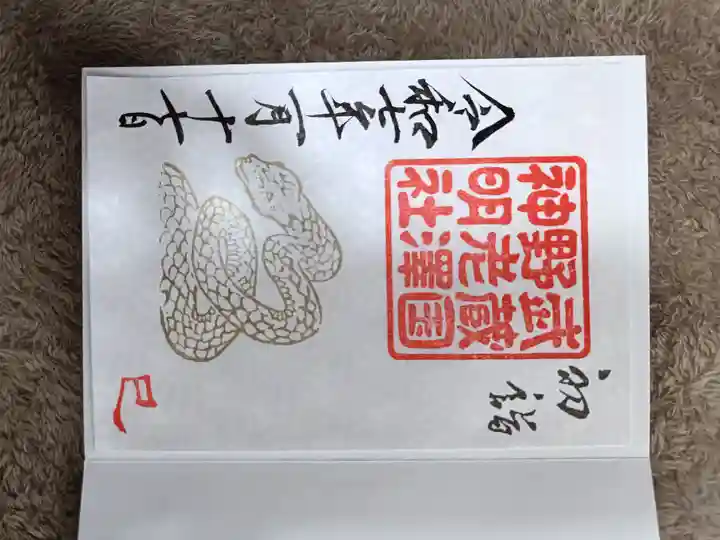 初詣
武蔵国
野老澤
神明社
巳
令和七年一月十七日